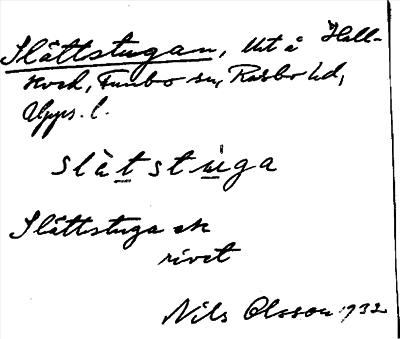 Slåttstugan, Ut å Hall-
kved, Funbo sn, Rasbo hd,
Upps. l.
slåtstùga
Slåttstuga ek
rivet
Nils Olsson 1932